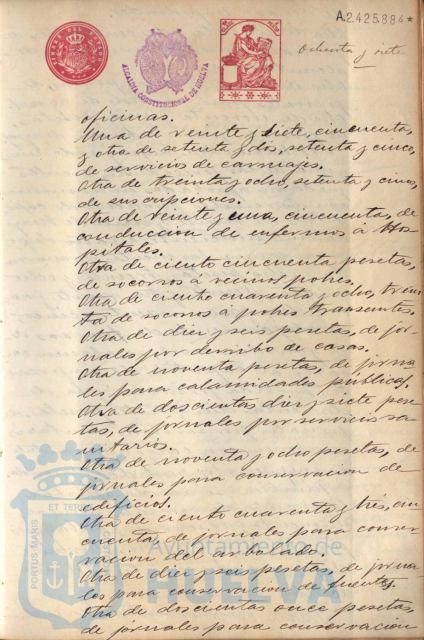 A.2.425.884*
ALCALDIA CONSTITUCIONAL DE HUELVA
Ochenta y siete
oficinas.
Una de veinte y siete, cincuenta,
y otra de setenta y dos, setenta y cinco,
de servicios de carruajes.
Otra de treinta y ocho, setenta y cinco,
de suscripciones.
Otra de veinte y una, cincuenta, de
conduccion de enfermos á Hos
pitales.
Otra de ciento cincuenta pesetas,
de socorros á vecinos pobres.
Otra de ciento cuarenta y ocho, trein
ta de socorros á pobres transeuntes.
Otra de diez y seis pesetas, de jor-
nales por derribo de casas.
Otra de noventa pesetas, de jorna-
les para calamidades públicas.
Otra de doscientas diez y siete pese
tas, de jornales por servicios sa-
nitarios.
Otra de noventa y ocho pesetas, de
jornales para conservacion de
edificios.
Otra de ciento cuarenta y tres, cin
cuenta, de jornales para conser-
vacion del arbolado.
Otra de diez y seis pesetas, de jorna-
les para conservacion de fuentes.
Otra de doscientas once pesetas,
de jornales para conservacion
PORTUS MARIS
ET TERR
Ayuntamiento de
HUELVA